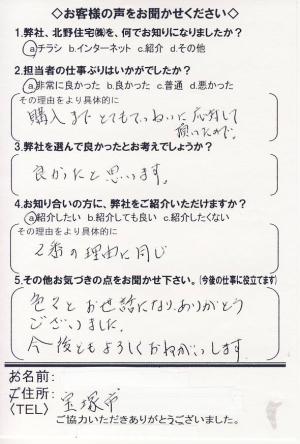 ◇お客様の声をお聞かせください◇
1.弊社、北野住宅㈱を、何でお知りになりましたか?
a.チラシ b.インターネット c.紹介 d.その他
2.担当者の仕事ぶりはいかがでしたか?
a.非常に良かった b.良かった c.普通 d.悪かった
その理由をより具体的に
購入まで とてもていねいに 応対して
頂いたので。
3.弊社を選んで良かったとお考えでしょうか?
良かったと思います。
4.お知り合いの方に、弊社をご紹介いただけますか?
a.紹介したい b.紹介しても良い c.紹介したくない
その理由をより具体的に
2番の理由に同じ
5.その他お気づきの点をお聞かせ下さい。(今後の仕事に役立てます)
色々とお世話になり、ありがとう
ございました。
今後ともよろしくおねがいします
お名前:
ご住所:
〈TEL〉 宝塚市
ご協力いただきありがとうございました。